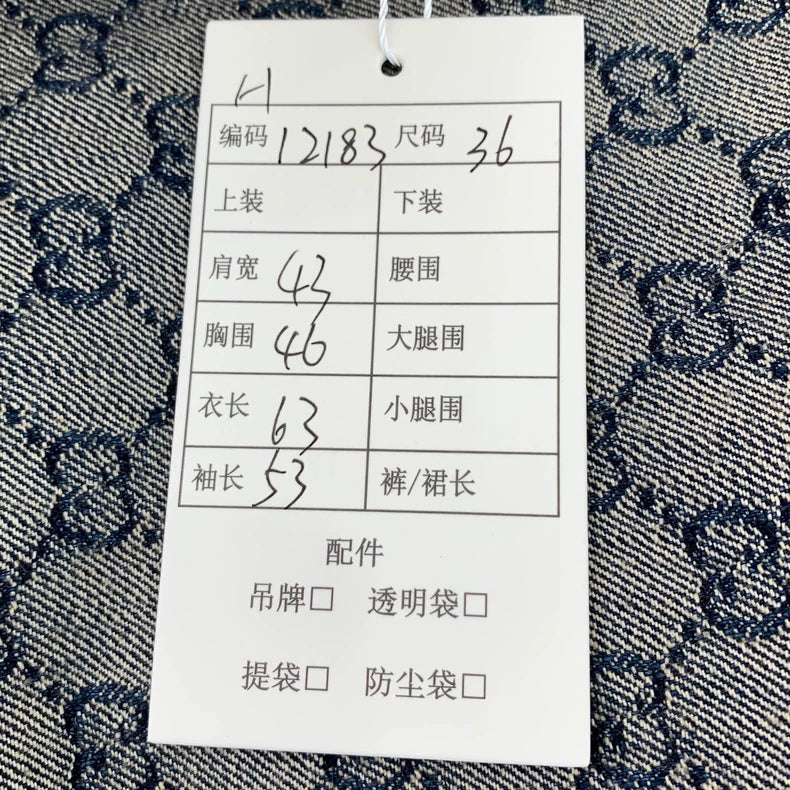 1-1
编码 12183 尺码 36
上装 下装
肩宽 43 腰围
胸围 46 大腿围
衣长 63 小腿围
袖长 53 裤/裙长
配件
吊牌□ 透明袋□
提袋□ 防尘袋□